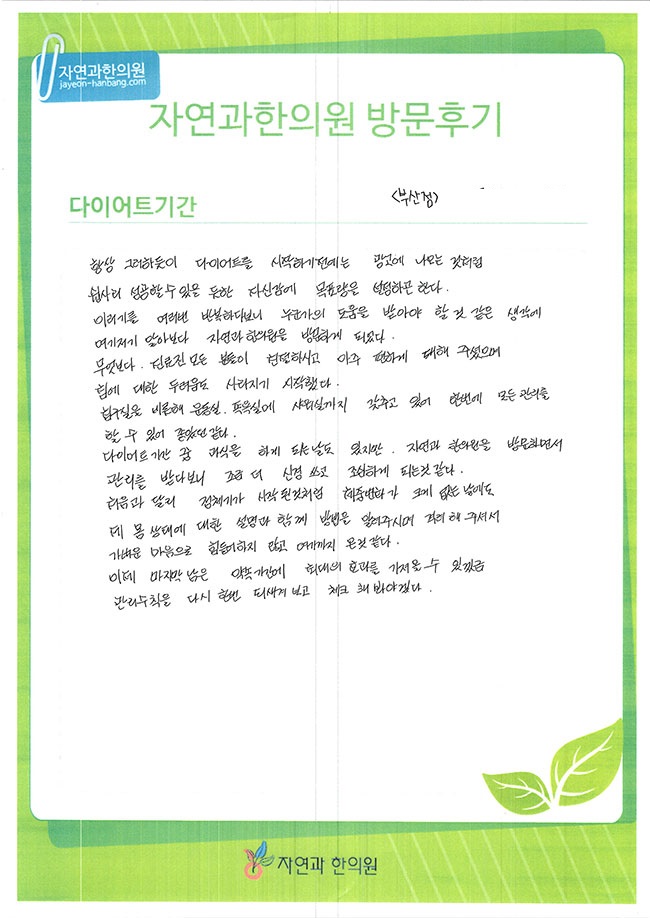 자연과한의원
jayeon-hanbang.com
자연과한의원 방문후기
다이어트기간
<부산점>
항상 그러하듯이 다이어트를 시작하기전에는 광고에 나오는 것처럼
쉽사리 성공할 수 있을 듯한 자신감에 목표량을 설정하곤 한다.
이러기를 여러번 반복하다보니 누군가의 도움을 받아야 할 것 같은 생각에
여기저기 알아보다 자연과한의원을 방문하게 되었다.
무엇보다. 의료진 모든 분들이 친절하시고 아주 편하게 대해 주셨으며
침에 대한 두려움도 사라지기 시작했다.
침구실을 비롯해 운동실. 족욕실에 샤워실까지 갖추고 있어 한번에 모든 관리를
할 수 있어 좋았던 같다.
다이어트기간 중 과식을 하게 되는날도 있지만. 자연과 한의원을 방문하면서
관리를 받다보니 조금 더 신경 쓰고 조심하게 되는것 같다.
처음과 달리 정체기가 시작 된것처럼 체중변화가 크게 없는 날에도
내 몸 상태에 대한 설명과 함께 방법을 알려주시며 격려 해 주셔서
가벼운 마음으로 힘들어하지 않고 여기까지 온것 같다.
이제 마지막 남은 기간에 최대의 효과를 가져올 수 있게끔
관리수칙을 다시 한번 되새겨 보고 체크 해 봐야겠다.
자연과 한의원